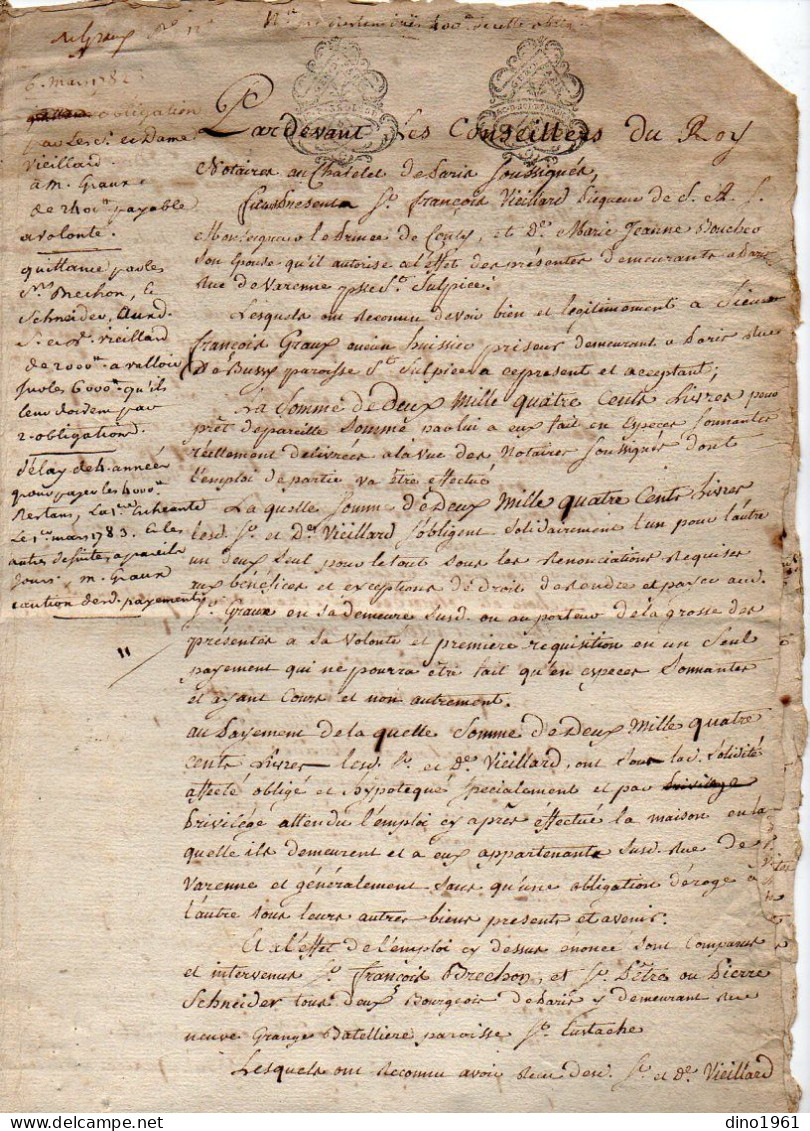 6. mars 1782
obligation
par Les Sr. et Dame
Vieillard
a m. Graux
de 2400# payable
a volonte.
quittance par les
Srs. Brechon, &
Schneider, Aux d.
S. et de. vieillard
de 2000# a valloir
sur les 6000# qu'ils
leur doivent par
2. obligation.
délay de 4. années
pour payer les 4000#
Restans, La 1ere Echéante
Le 1er mars 1783. & les
autres de suite a pareils
jours. m. Graux
caution desd. payements
Pardevant Les Conseillers du Roy
Notaires au Chatelet de Paris soussignés,
furent Presents Sr. françois Vieillard Piqueur de S. A. S.
Monseigneur le Prince de Conty, et De. Marie Jeanne Boucher
son Epouse qu'il autorise a l'effet des présentes demeurants a Paris
Rue de Varenne psse St. Sulpice.
Lesquels ont Reconnu devoir bien et legitimement a Sieur
françois Graux ancien huissier priseur demeurant a Paris Rue
de Bussy paroisse St. Sulpice a ce present et acceptant,
La Somme de Deux Mille quatre Cents Livres pour
prêt de pareille Somme par lui a eux fait en Especes Sonnantes
réellement delivrées a la vue des Notaires Soussignés dont
l'emploi de partie va être effectué
La quelle Somme de Deux Mille quatre Cents Livres
Lesd. Sr. et De. Vieillard s'obligent Solidairement l'un pour l'autre
un deux seul pour le tout sous les Renonciations Requises
aux bénéfices et exceptions de Droit de rendre et payer aud.
Sr. Graux en sa demeure Susd. ou au porteur de la grosse des
présentes a sa Volonté et première requisition en un Seul
payement qui ne pourra être fait qu'en especes Sonnantes
et ayant Cours et non autrement.
au Payement de la quelle Somme de Deux Mille quatre
cents Livres Lesd. Sr. et De. Vieillard, ont sous lad. solidité
affecté obligé et hypotequé Specialement et par Privilege
Privilége attendu l'emploi cy après effectué la maison en la
quelle ils demeurent et a eux appartenante Susd. Rue de
Varenne et généralement sans qu'une obligation déroge à
l'autre tous leurs autres biens presents et avenir.
Et a l'effet de l'emploi cy dessus énoncé sont Comparus
et intervenus Sr. françois Brechon, et Sr. Pêtre ou Pierre
Schneider tous deux Bourgeois de Paris y demeurant Rue
neuve Grange Batelliere paroisse St. Eustache
Lesquels ont Reconnu avoir Recu desd. Sr. et De. Vieillard
dino1961